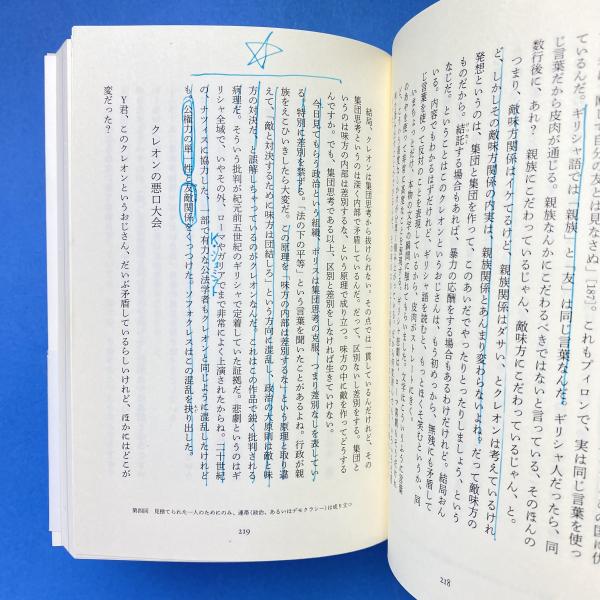 国に仇
して自分の友とは見なさぬ」[187]。これもプイロンで、実は同じ国に
ているんだ。ギリシャ語では「親族」と「友」は同じ言葉なんだ。ギリシャ人だったら、同
じ言葉だから皮肉が通じる。親族なんかにこだわるべきではないと言っている、そのほんの
数行後に、あれ? 親族にこだわっているじゃん、敵味方にこだわっているじゃん、と。
つまり、敵味方関係はイケてるけど、親族関係はダサい、とクレオンは考えているけれ
ど、しかしその敵味方関係の内実は、親族関係とあんまり変わらないよね。だって敵味方の
発想というのは、集団と集団を作って、このあいだでやりとりしましょう、という
ものだから。結託する場合もあれば、暴力の応酬をする場合もあるわけだけれど。結局おん
なじだ。ということはこのクレオンというおじさんは、もう初めっから、無残にも矛盾して
いる。内容でもわかるはずだけれど、ギリシャ語を読むと、もっとはっきり笑むというか、同
じ言葉を使って
218
結局、クレオンは集団思考から抜けられない。その点では一貫しているんだけれど、その
集団思考というのは深く内部で矛盾しているんだ。だって、区別ないし差別をする。集団と
いうのは味方の内部は差別するな、という原理で成り立つ。味方の中に敵を作ってどうする
んですか。でも、集団思考である以上、区別と差別をしなければ生きていけない。
今日見てもらう政治という組織、ポリスは集団思考の克服、つまり差別なしを表してい
る。特別に差別を禁ずる。「法の下の平等」という言葉を聞いたことがあるよね。行政が親
族をえこひいきしたら大変だ。この原理を「味方の内部は差別するな」という原理と取り違
えて、「敵と対決するために味方は団結しろ」という方向に混乱し、政治の大原則は敵と味
方の対決だ、と誤解しちゃっているのがクレオンなんだ。これはこの作品で鋭く批判される
病理だ。そういう批判が紀元前五世紀のギリシャで定着していた証拠だ。悲劇というのはギ
リシャ全域で、いやその外、ローマやガリアでまで非常によく上演されたからね。二十世紀
の、ナツィスに協力した、一部で有力な公法学者もクレオンと同じように混乱したけれど
も、公権力の単一性と友敵関係をくっつけた。ソフォクレスはこの混乱を抉り出した。
クレオンの悪口大会
Y君、このクレオンというおじさん、だいぶ矛盾しているらしいけれど、ほかにはどこが
変だった?
第四回 見捨てられた一人のためにのみ、連帯(政治、あるいはデモクラシー)は成り立つ
219